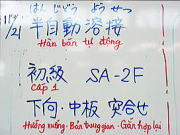 はん じどう ようせつ
11/21 半自動溶接
Hàn bán tự động
初級 SA-2F
Cấp 1
下向・中板 突合せ
Hướng xuống・Bản trung gian・Gắn hợp lại